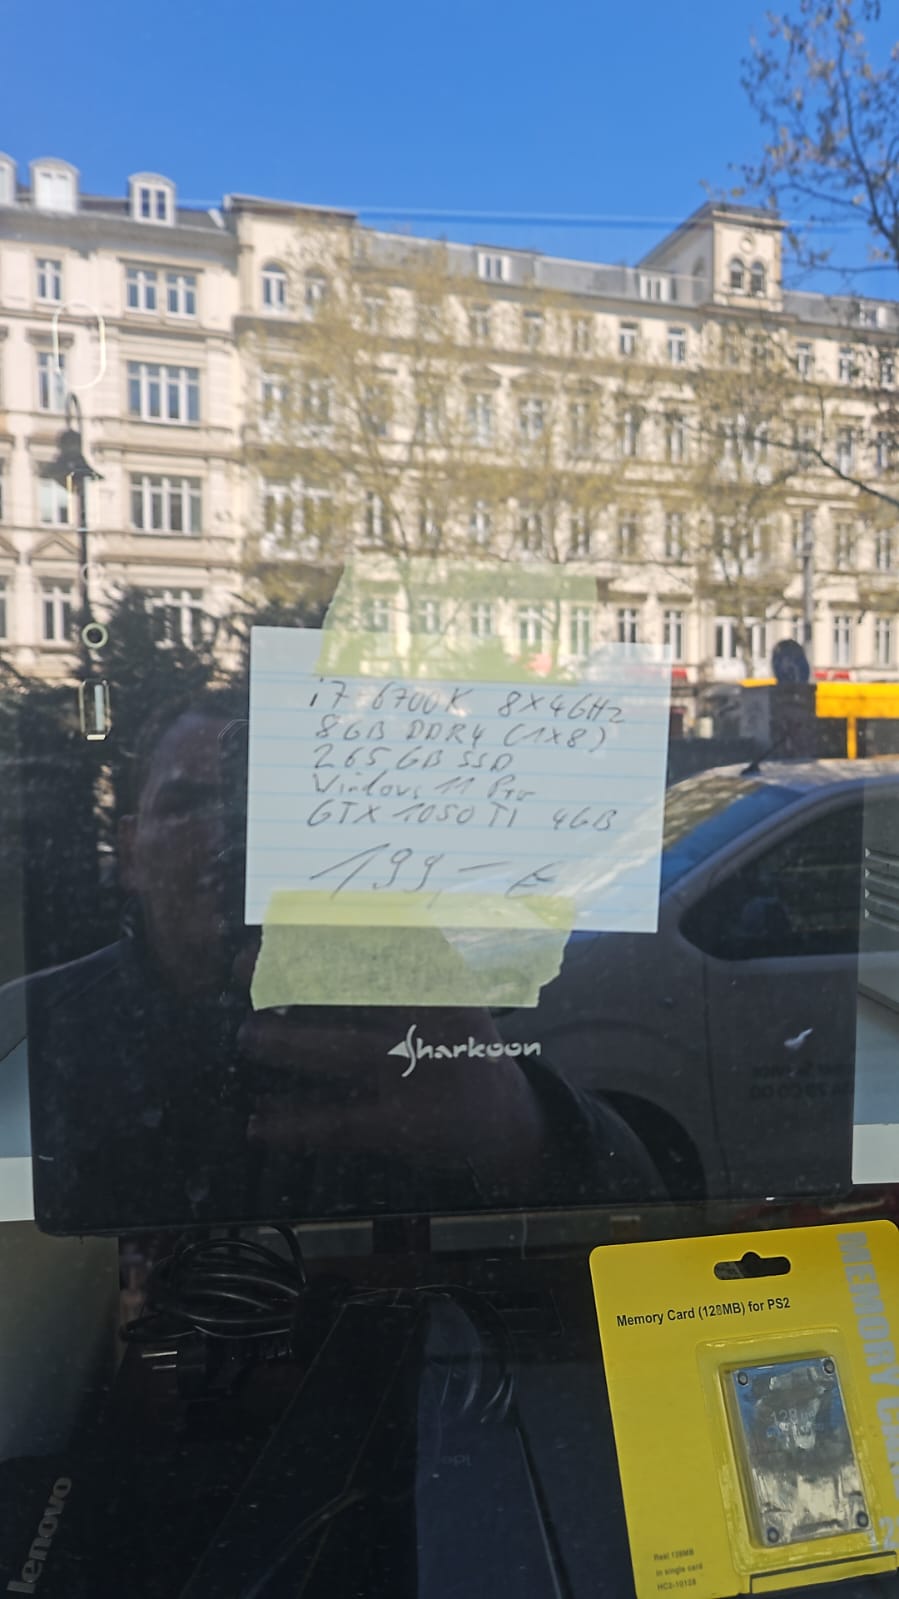 i7-6700K 8x4GHz
8GB DDR4 (1x8)
265 GB SSD
Windows 11 Pro
GTX 1050 TI 4GB
199,- €
Sharkoon
Memory Card (128MB) for PS2
MEMORY
128
Real 128MB
in single card
HC2-10128
lenovo